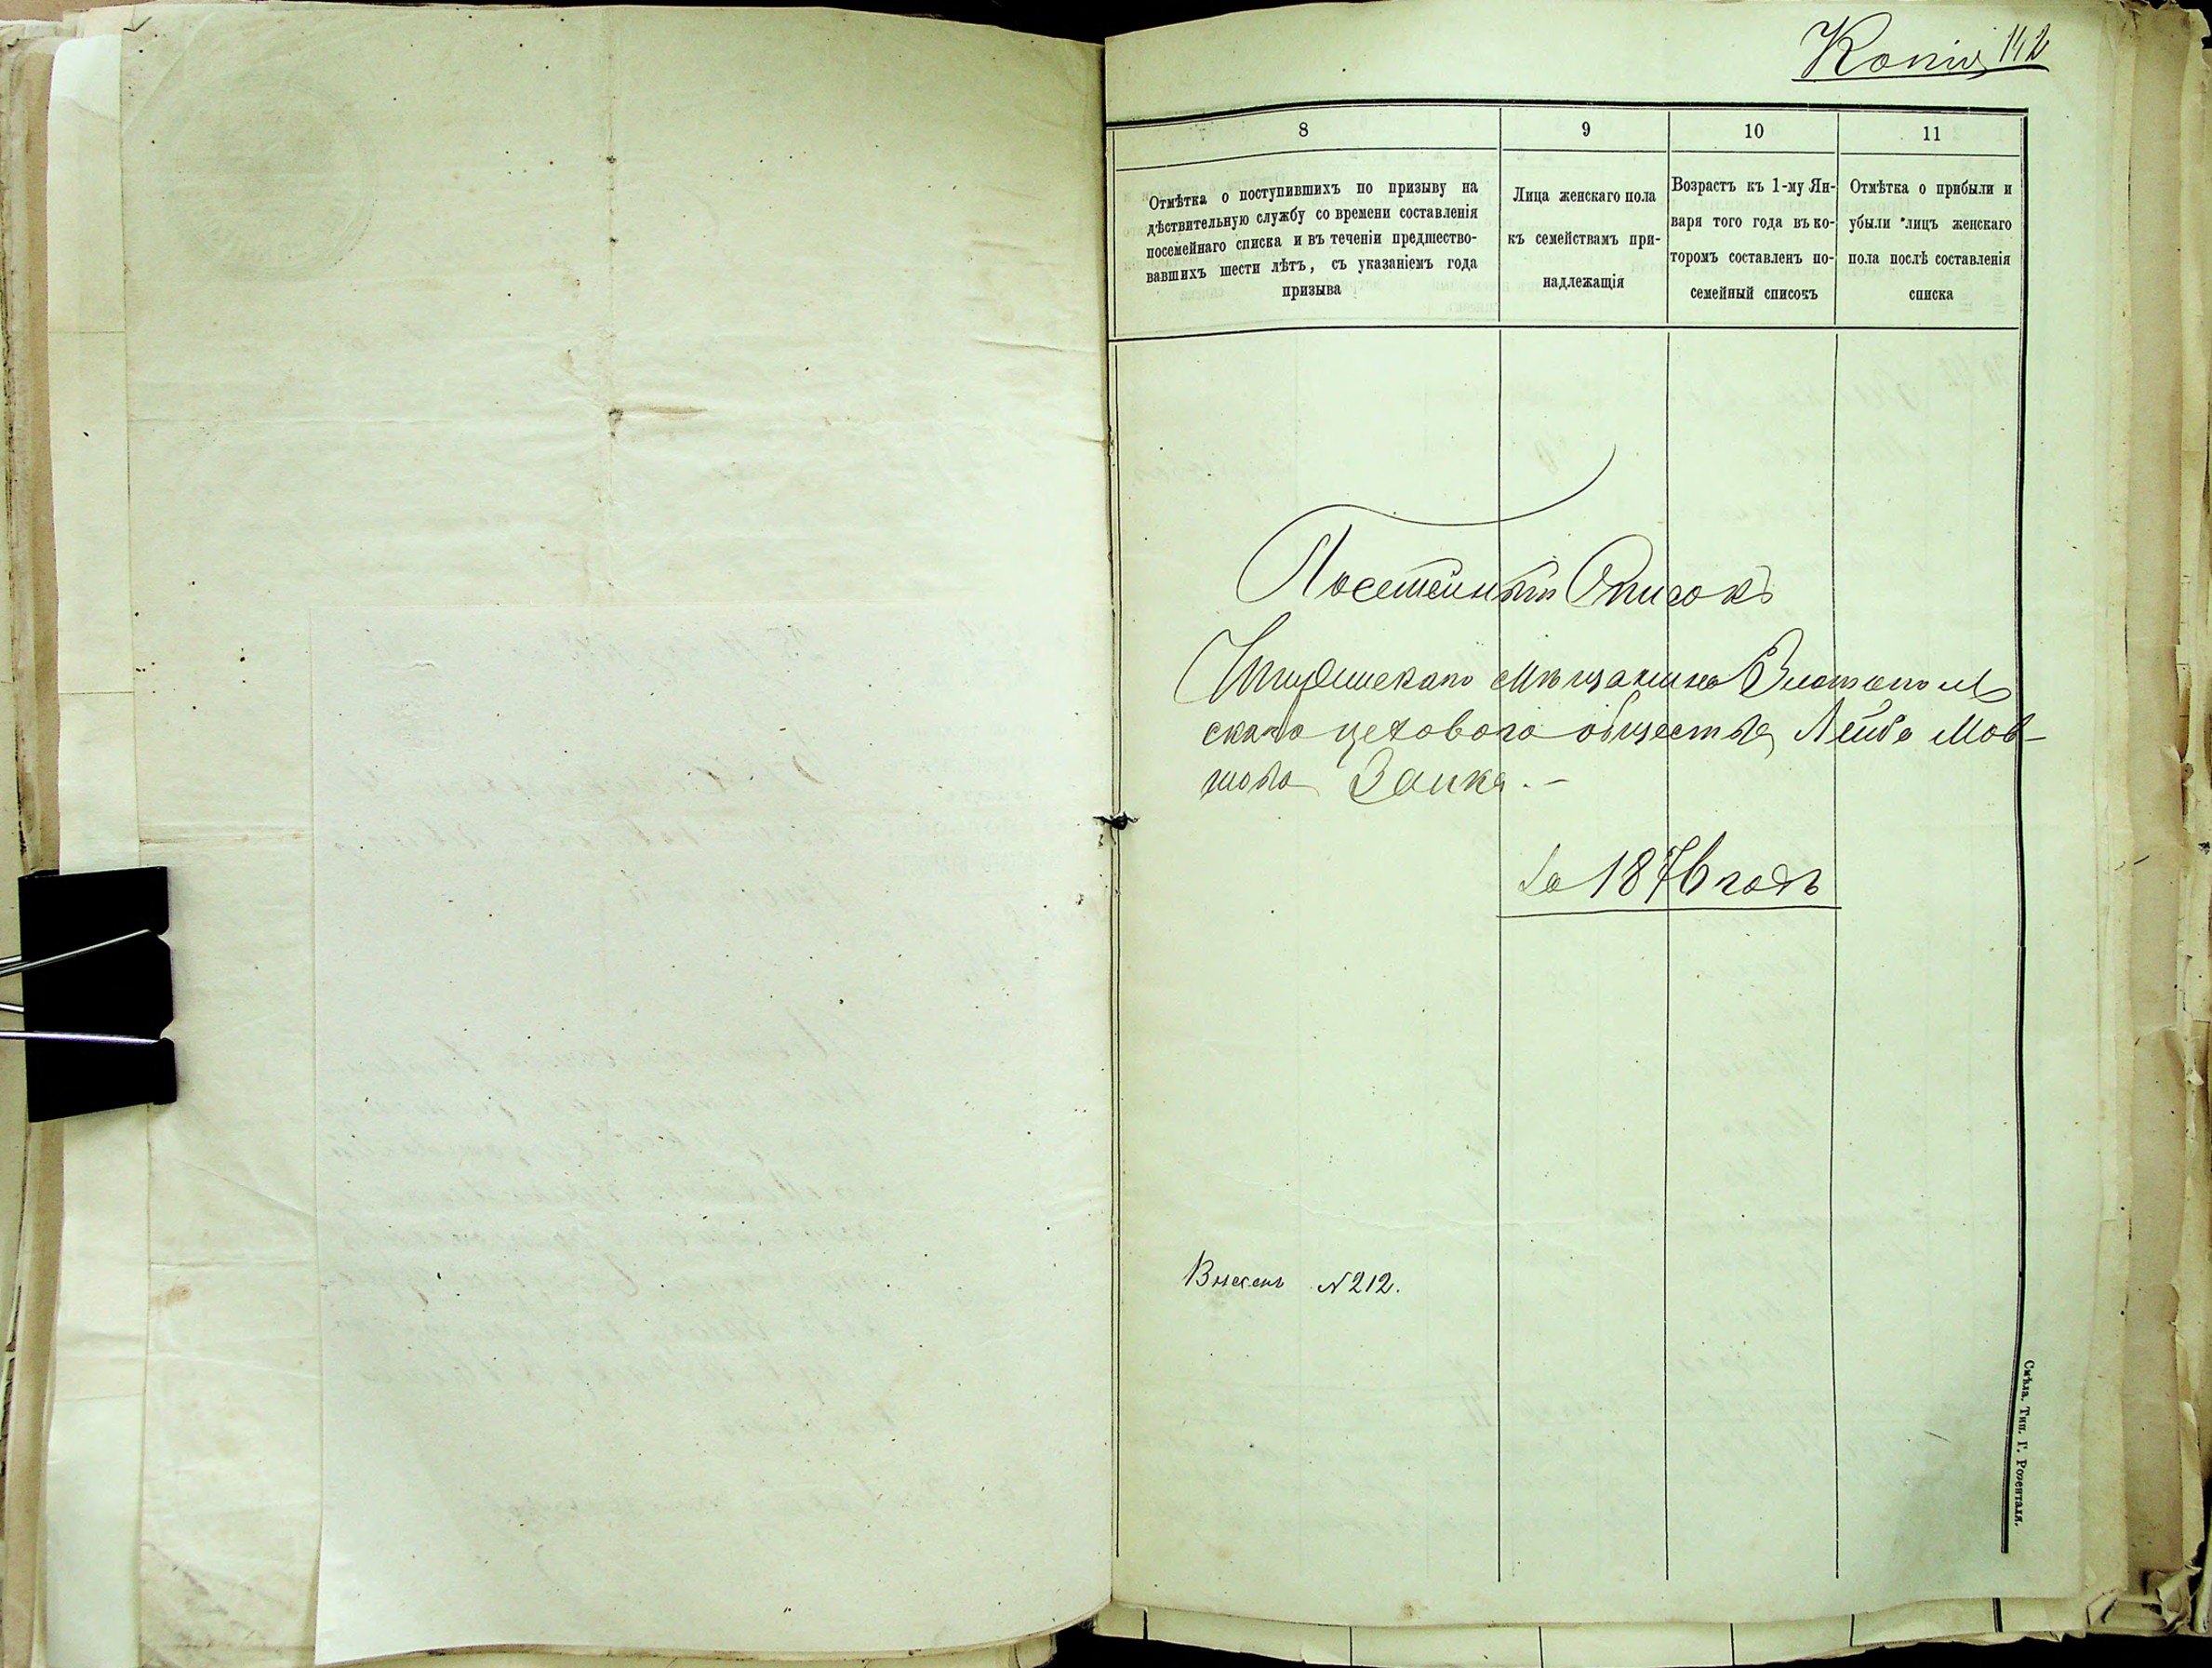 Копія 142
8
9
10
11
Отмѣтка о поступившихъ по призыву на
дѣствительную службу со времени составленія
посемейнаго списка и въ теченіи предшество-
вавшихъ шести лѣтъ, съ указаніемъ года
призыва
Лица женскаго пола
къ семействамъ при-
надлежащія
Возрастъ къ 1-му Ян-
варя того года въ ко-
торомъ составленъ по-
семейный списокъ
Отмѣтка о прибыли и
убыли лицъ женскаго
пола послѣ составленія
списка
Посемейный Списокъ
мѣщанина Златополь
скаго цехового общества Лейба Мов-
шова Заика.-
За 1876 годъ
Внесенъ N 212.
Смѣла. Тип. Г. Розенталя.